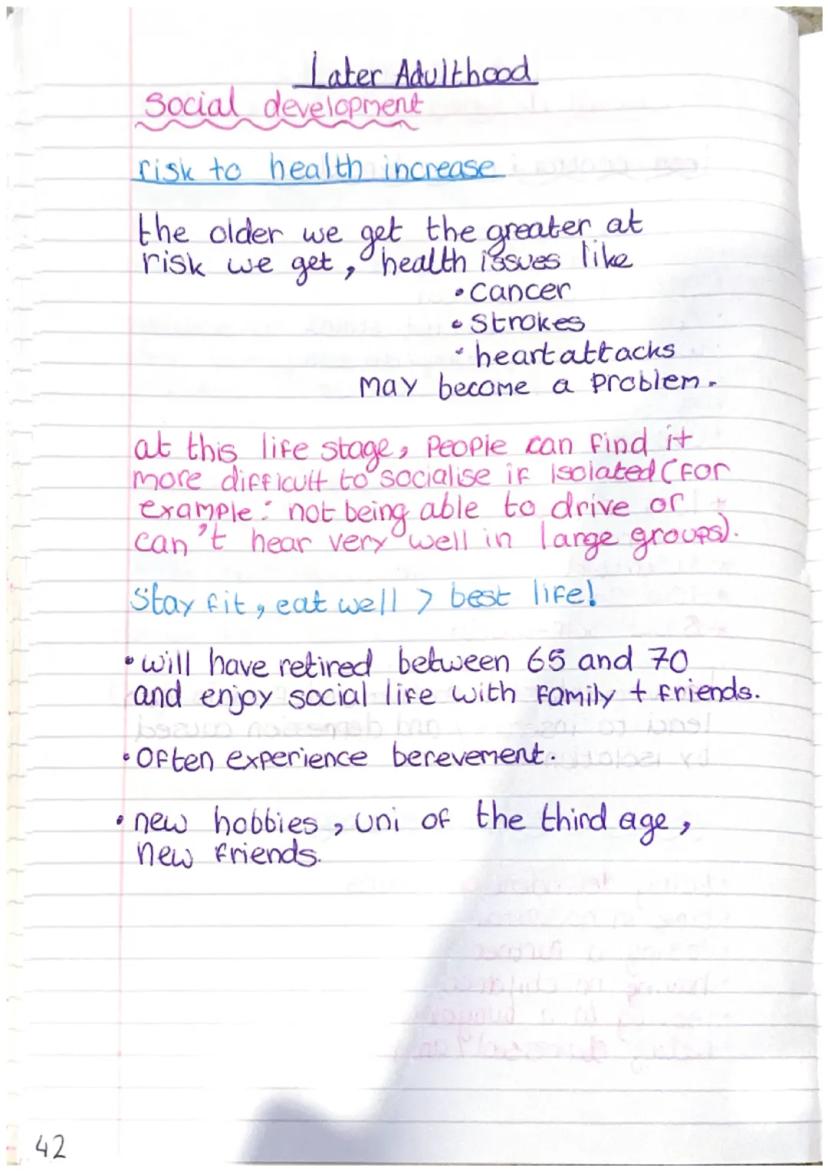 Later Adulthood
Social development
risk to health increase
the older we get the greater at
risk we get, health issues like
• Cancer
• Strokes
• heart attacks
may become a problem.
at this life stage, People can find it
more difficult to socialise if isolated (for
example: not being able to drive or
can't hear very well in large groups).
Stay fit, eat well > best life!
• will have retired between 65 and 70
and enjoy social life with family + friends.
• Often experience berevement.
• new hobbies, uni of the third age,
new friends.
42